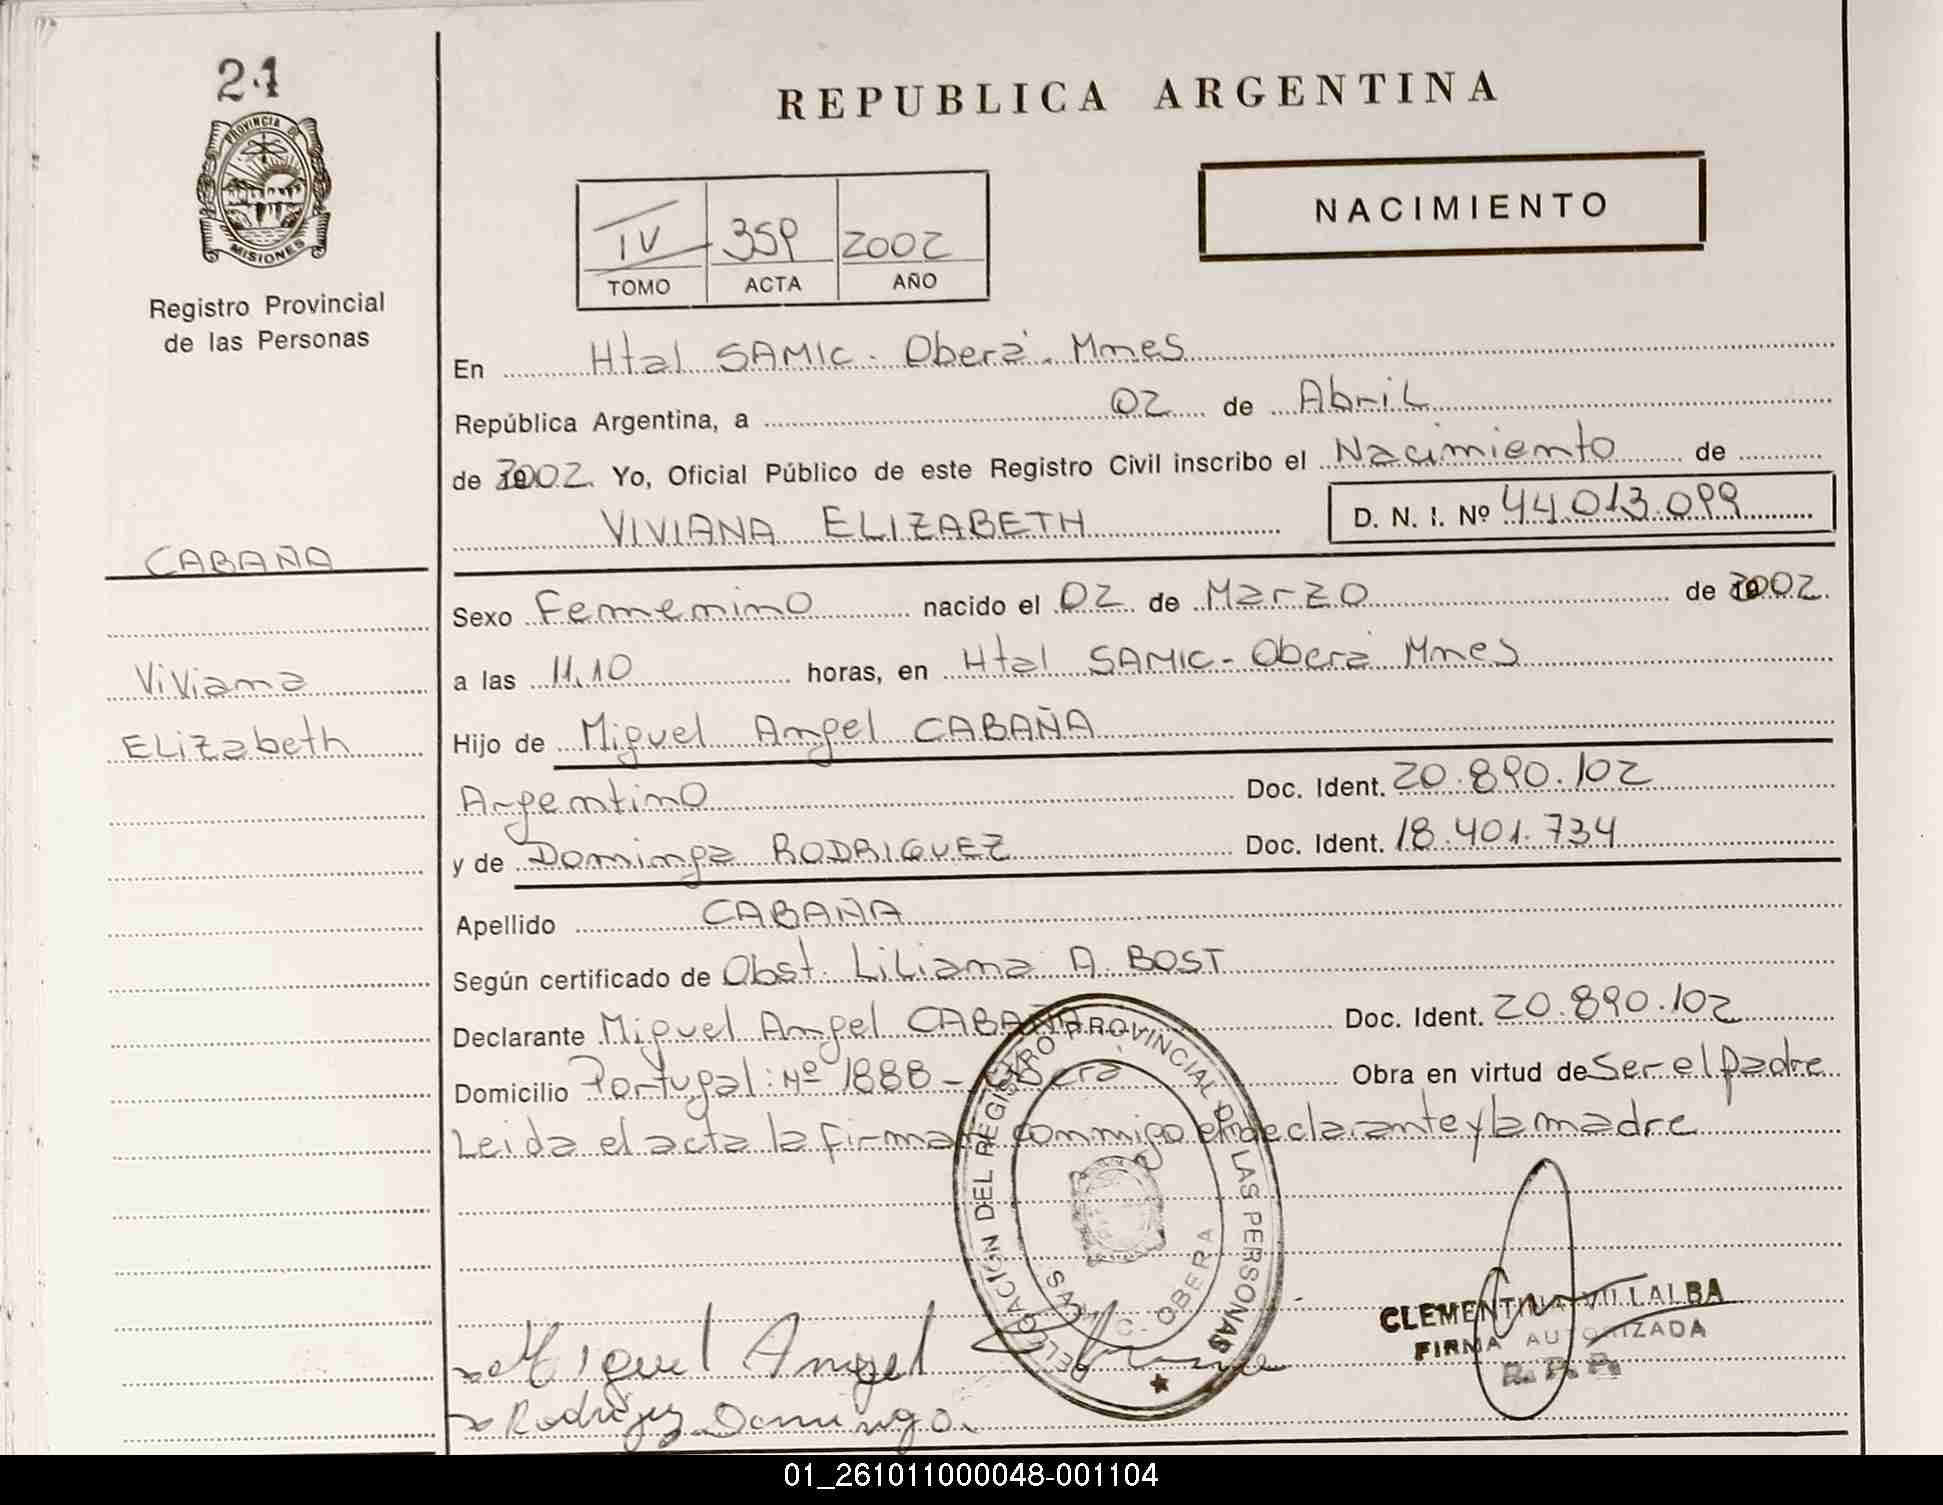 24
PROVINCIA DE
MISIONES
Registro Provincial
de las Personas
CABAÑA
Viviana
Elizabeth
REPUBLICA ARGENTINA
NACIMIENTO
IV 359 2002
TOMO ACTA AÑO
En Htal SAMIC. Oberá. Mnes
República Argentina, a 02 de Abril
de 2002. Yo, Oficial Público de este Registro Civil inscribo el Nacimiento de
VIVIANA ELIZABETH D. N. I. Nº 44.013.099
Sexo Femenino nacido el 02 de Marzo de 2002.
a las 11.10 horas, en Htal SAMIC - Oberá Mnes
Hijo de Miguel Angel CABAÑA
Argentino Doc. Ident. 20.890.102
y de Dominga RODRIGUEZ Doc. Ident. 18.401.734
Apellido CABAÑA
Según certificado de Obst. Liliana A. BOST
Declarante Miguel Angel CABAÑA Doc. Ident. 20.890.102
Domicilio Portugal: Nº 1888 - Oberá Obra en virtud de Ser el padre
Leida el acta la firman conmigo el declarante y la madre
DELEGACIÓN DEL REGISTRO PROVINCIAL DE LAS PERSONAS
OBERA
CLEMENTINA VILLALBA
FIRMA AUTORIZADA
R. P. P.
Miguel Angel
Rodriguez Dominga
01_261011000048-001104